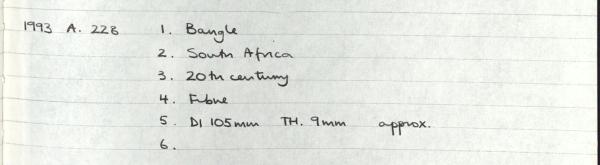 1993 A. 228 1. Bangle
2. South Africa
3. 20th century
4. Fibre
5. DI 105mm TH. 9mm approx.
6.